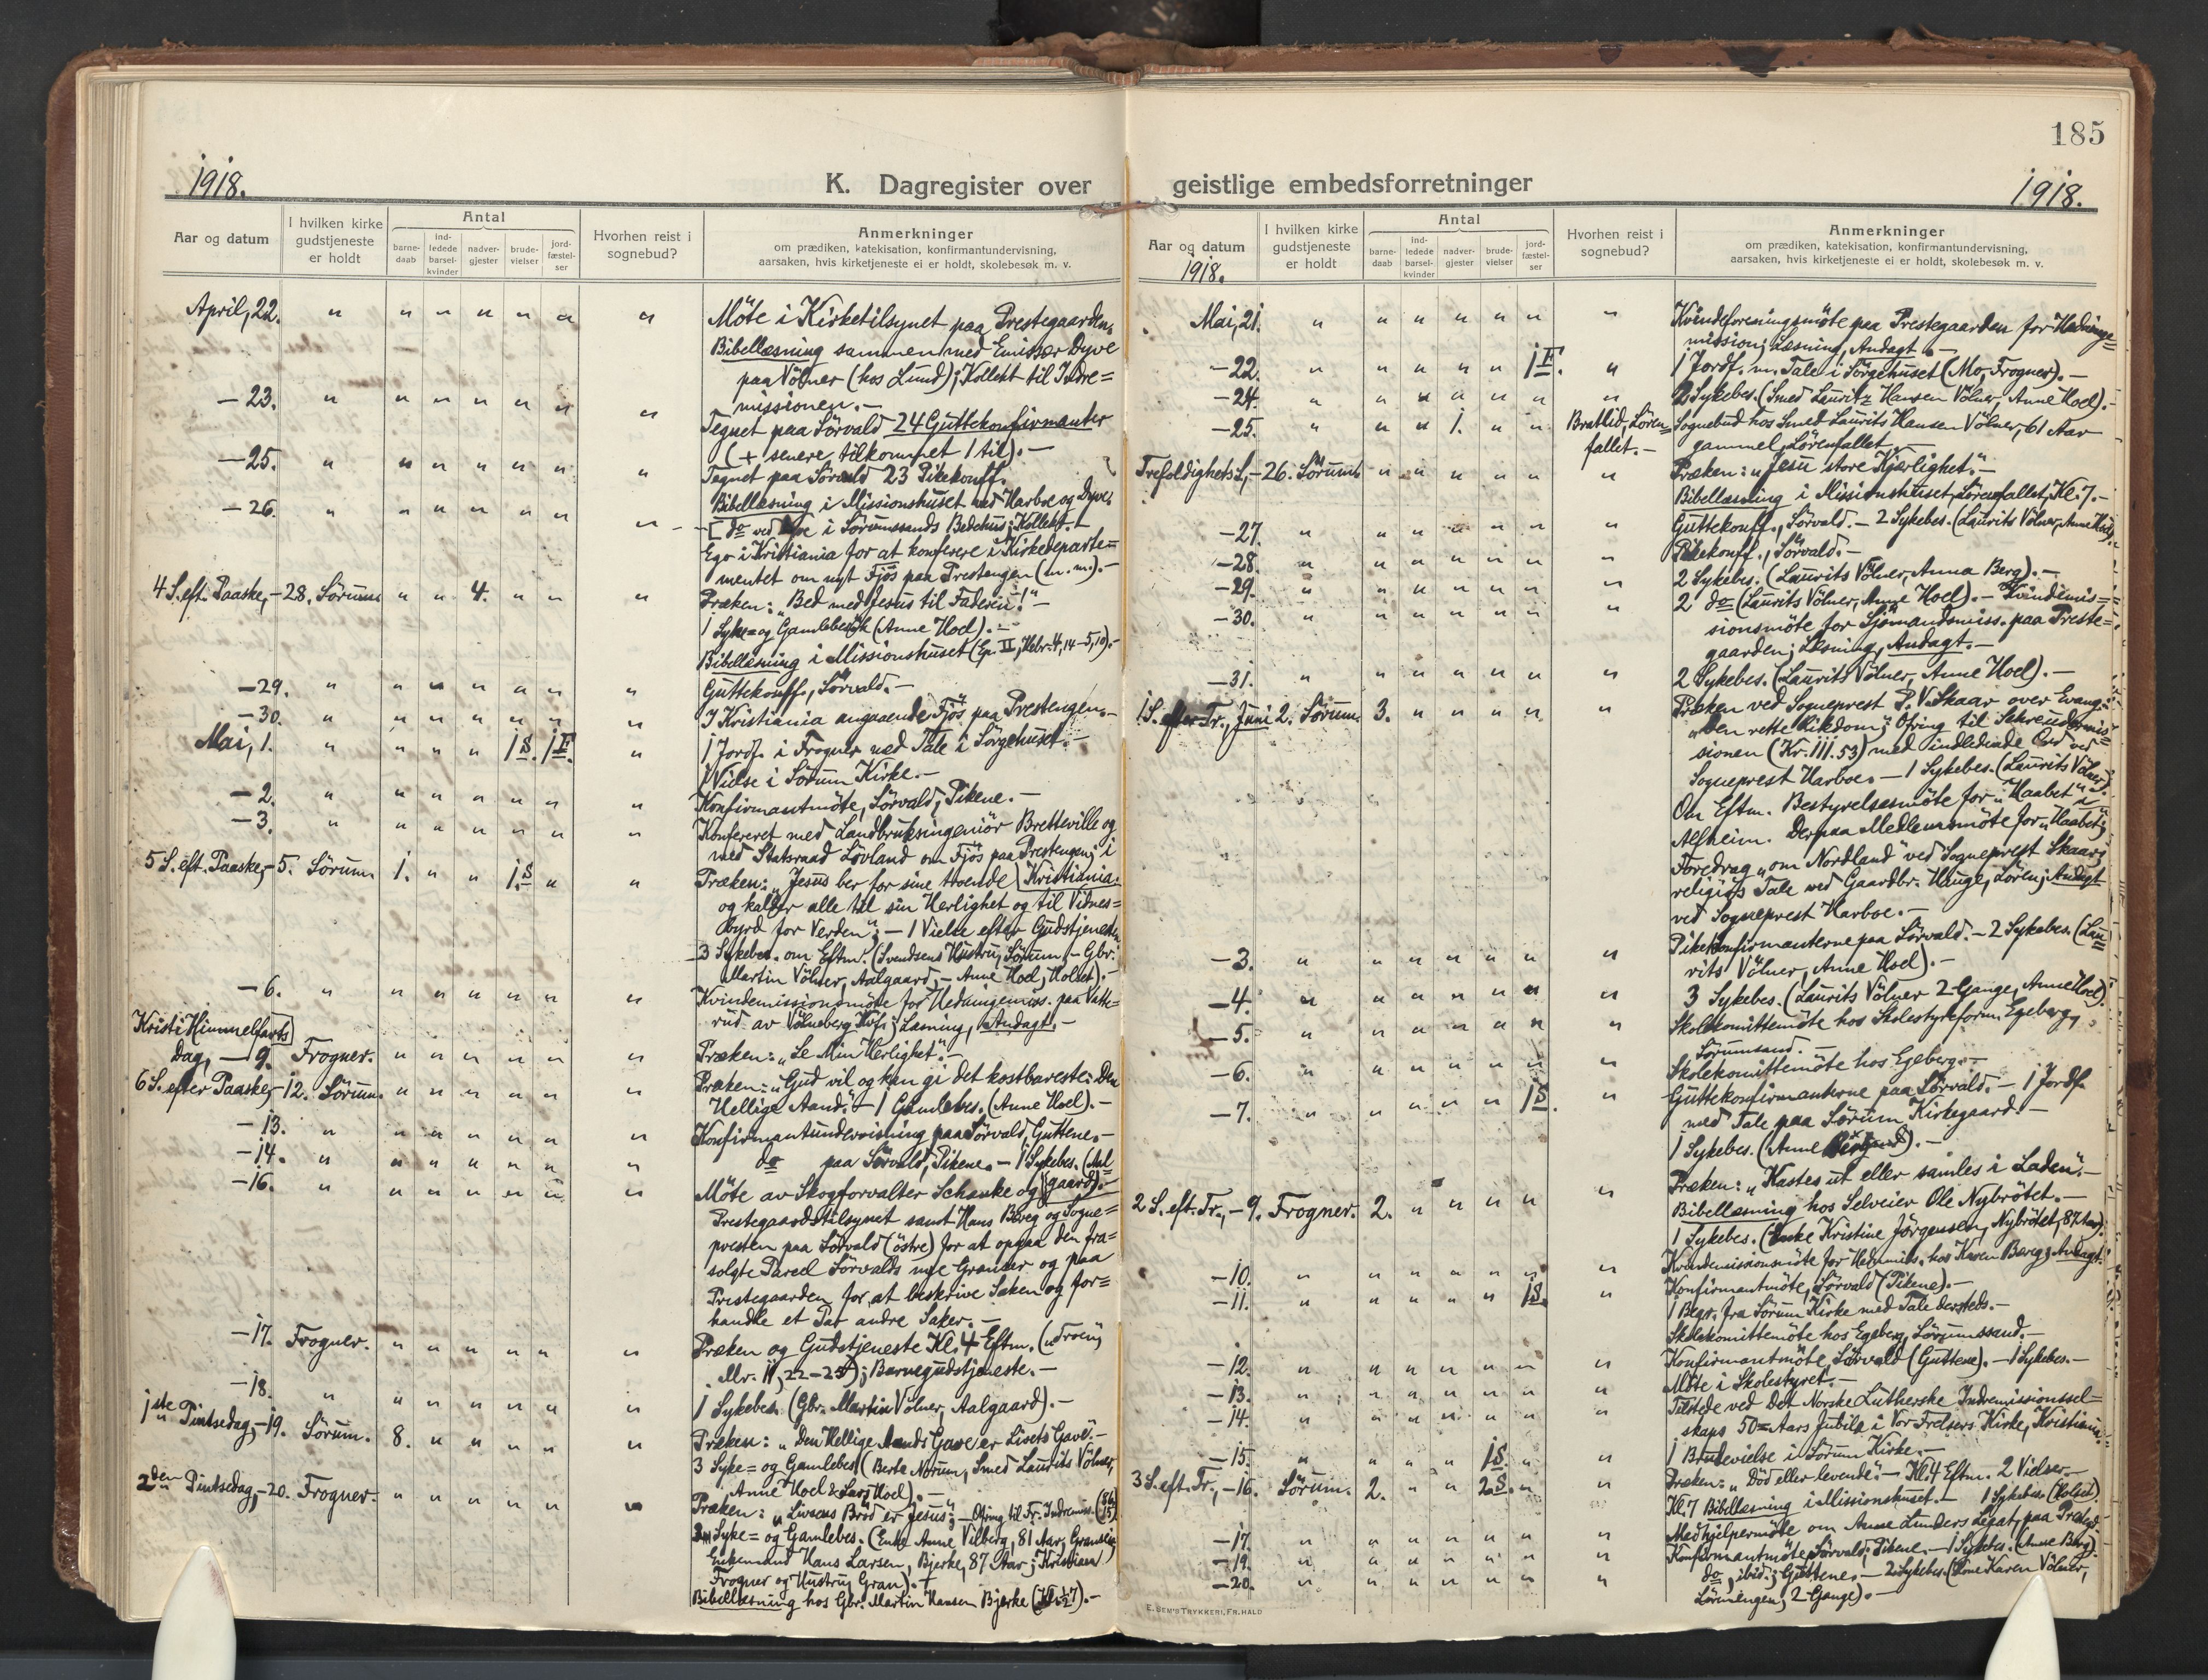 185
1918.
K. Dagregister over geistlige embedsforretninger
1918.
Aar og datum
I hvilken kirke gudstjeneste er holdt
Antal
barne-daab
ind-ledede barsel-kvinder
nadver-gjester
brude-vielser
jord-fæstel-ser
Hvorhen reist i sognebud?
Anmerkninger
om prædiken, katekisation, konfirmantundervisning,
aarsaken, hvis kirketjeneste ei er holdt, skolebesøk m. v.
April, 22. Möte i Kirketilsynet paa Prestegaarden.
Bibellæsning sammen med Emissær Dyve
paa Völner (hos Lund); Kollekt til Indre=
missionen.—
— 23. Tegnet paa Sörvald 24 Guttekonfirmanter
(+ senere tilkommet 1 til).—
— 25. Tegnet paa Sörvald 23 Pikekonff.
Bibellæsning i Missionshuset ved Harboe og Dyve.
— 26. do ved Dyve i Sörumsands Bedehus; Kollekt.
Ego i Kristiania for at konferere i Kirkedeparte=
mentet om nyt Fjös paa Prestengen (m.m.).—
4 S. eft. Paaske, — 28. Sörum 4. Præken: „Bed med Jesus til Faderen!"—
1 Syke= og Gamlebesök (Anne Hoel).—
Bibellæsning i Missionshuset (Ep. II, Hebr. 4,14—5,10).—
— 29. Guttekonff., Sörvald.—
— 30. I Kristiania angaaende Fjös paa Prestengen.—
Mai, 1. 1 S. 1 F. 1 Jordf. i Frogner med Tale i Sörgehuset.—
1 Vielse i Sörum Kirke.—
— 2. Konfirmantmöte, Sörvald, Pikene.—
— 3. Konfereret med Landbruksingeniör Bretteville og
med Statsraad Lövland om Fjös paa Prestengen; i
Kristiania.
5 S. eft. Paaske, — 5. Sörum 1. 1 S. Præken: „Jesus ber for sine troende
og kalder alle til sin Herlighet og til Vidnes=
byrd for Verden"; — 1 Vielse efter Gudstjenesten
3 Sykebes. om Eftm. (Svendsens Hustru, Sörum, — Gbr.
Martin Völner, Aalgaard, — Anne Hoel, Holset).—
— 6. Kvindemissionsmöte for Hedningemiss. paa Vatte=
rud av Völneberg Kvf.; Læsning, Andagt.—
Kristi Himmelfarts
Dag, — 9. Frogner. Præken: „Se Min Herlighet".—
6 S. efter Paaske, — 12. Sörum. Præken: „Gud vil og kan gi det kostbareste: Den
Hellige Aand".— 1 Gamlebes. (Anne Hoel).—
— 13. Konfirmantundervisning paa Sörvald, Guttene.—
— 14. do paa Sörvald, Pikene.— 1 Sykebes. (Aal=
gaard).—
— 16. Möte av Skogforvalter Schanke og
Prestegaardstilsynet samt Hans Berg og Sogne=
presten paa Sörvald (östre) for at opgaa den fra=
solgte Parcel Sörvalds nye Grænser og paa
Prestegaarden for at beskrive Saken og for=
handle et Par andre Saker.—
— 17. Frogner. Præken og Gudstjeneste Kl. 4 Eftm. („Troen",
Mr. 11, 22—25); Barnegudstjeneste.—
— 18. 1 Sykebes. (Gbr. Martin Völner, Aalgaard).—
1ste Pintsedag, — 19. Sörum. 8. Præken: „Den Hellige Aands Gave er Livets Gave".—
3 Syke= og Gamlebes. (Berte Norum, Smed Laurits Völner,
Anne Hoel & Lars Hoel).—
2den Pintsedag, — 20. Frogner. Præken: „Livsens Bröd er Jesus"; — Ofring til Fr. Indremiss.
Syke= og Gamlebes. (Enke Anne Vilberg, 81 Aar,
Enkemand Hans Larsen, Bjerke, 87 Aar; Kristian
Frogner og Hustru, Gran).
Bibellæsning hos Gbr. Martin Hansen Bjerke
Aar og datum
1918.
I hvilken kirke gudstjeneste er holdt
Antal
barne-daab
ind-ledede barsel-kvinder
nadver-gjester
brude-vielser
jord-fæstel-ser
Hvorhen reist i sognebud?
Anmerkninger
om prædiken, katekisation, konfirmantundervisning,
aarsaken, hvis kirketjeneste ei er holdt, skolebesøk m. v.
Mai, 21. Kvindeforeningsmöte paa Prestegaarden for Hedninge=
mission; Læsning, Andagt.—
— 22. 1 F. 1 Jordf. m. Tale i Sörgehuset (Mo, Frogner).—
— 24. 2 Sykebes. (Smed Lauritz Hansen Völner, Anne Hoel).—
— 25. 1. Bratlid, Lören=fallet.— Sognebud hos Smed Laurits Hansen Völner, 61 Aar
gammel, Lörenfallet.—
Trefoldighets S., — 26. Sörum. Præken: „Jesu store Kjærlighet".—
Bibellæsning i Missionshuset, Lörenfallet, Kl. 7.—
— 27. Guttekonff., Sörvald.— 2 Sykebes. (Laurits Völner, Anne Hoel).
— 28. Pikekonff., Sörvald.—
— 29. 2 Sykebes. (Laurits Völner, Anna Berg).—
— 30. 2 do (Laurits Völner, Anne Hoel).— Kvindemis=
sionsmöte for Sjömandsmiss. paa Preste=
gaarden; Læsning, Andagt.—
— 31. 2 Sykebes. (Laurits Völner, Anne Hoel).—
1 S. efter Tr., Juni 2. Sörum. 3. Præken ved Sogneprest P. V. Skaar over Evang.:
„Den rette Rikdom"; Ofring til Schreudermis=
sionen (Kr. 111.53) med indledende Ord ved
Sogneprest Harboe.— 1 Sykebes. (Laurits Völner).
Om Eftm. Bestyrelsesmöte for „Haabet" i
Alfheim. Derpaa Medlemsmöte for „Haabet";
Foredrag „om Nordland" ved Sogneprest Skaar;
religiös Tale ved Gaardbr. Hauge, Lören; Andagt
ved Sogneprest Harboe.—
— 3. Pikekonfirmanterne paa Sörvald.— 2 Sykebes. (Lau=
rits Völner, Anne Hoel).—
— 4. 3 Sykebes. (Laurits Völner 2 Gange, Anne Hoel).
— 5. Skolekomittemöte hos Skolestyreform. Egeberg,
Sörumsand.—
— 6. Skolekomittemöte hos Egeberg.—
— 7. 1 S. Guttekonfirmanterne paa Sörvald.— 1 Jordf.
med Tale paa Sörum Kirkegaard.—
1 Sykebes. (Anne
2 S. eft. Tr., — 9. Frogner. 2. Præken: „Kastes ut eller samles i Laden".—
Bibellæsning hos Selveier Ole Nybrötet.—
1 Sykebes. (Enke Kristine Jörgensen, Nybrötet, 87 Aar).
— 10. Kvindemissionsmöte for Hedmiss. hos Karen Berg; Andagt.
Konfirmantmöte, Sörvald (Pikene).—
— 11. 1 S. 1 Begr. fra Sörum Kirke med Tale dersteds.—
Skolekomittemöte hos Egeberg, Sörumssand.—
— 12. Konfirmantmöte, Sörvald (Guttene).— 1 Sykebes.—
— 13. Möte i Skolestyret.—
— 14. Tilstede ved Det Norske Lutherske Indremissionssel=
skaps 50=Aars Jubilæ i Vor Frelsers Kirke, Kristiania.
— 15. 1 S. 1 Brudevielse i Sörum Kirke.—
3 S. eft. Tr., — 16. Sörum. 2. 2 S. Præken: „Död eller levende".— Kl. 4 Eftm. 2 Vielser.—
Kl. 7 Bibellæsning i Missionshuset.— 1 Sykebes. (Holset).
— 17. Medhjelpermöte om Anne Lunders Legat, paa Prestegd.
— 19. Konfirmantmöte, Sörvald; Pikene.— 1 Sykebes. (Anne Berg).
— 20. do, ibid.; Guttene.— 2 Sykebes. (Karen Völner,
Lörenengen, 2 Gange).—
E. SEM'S TRYKKERI, FR.HALD